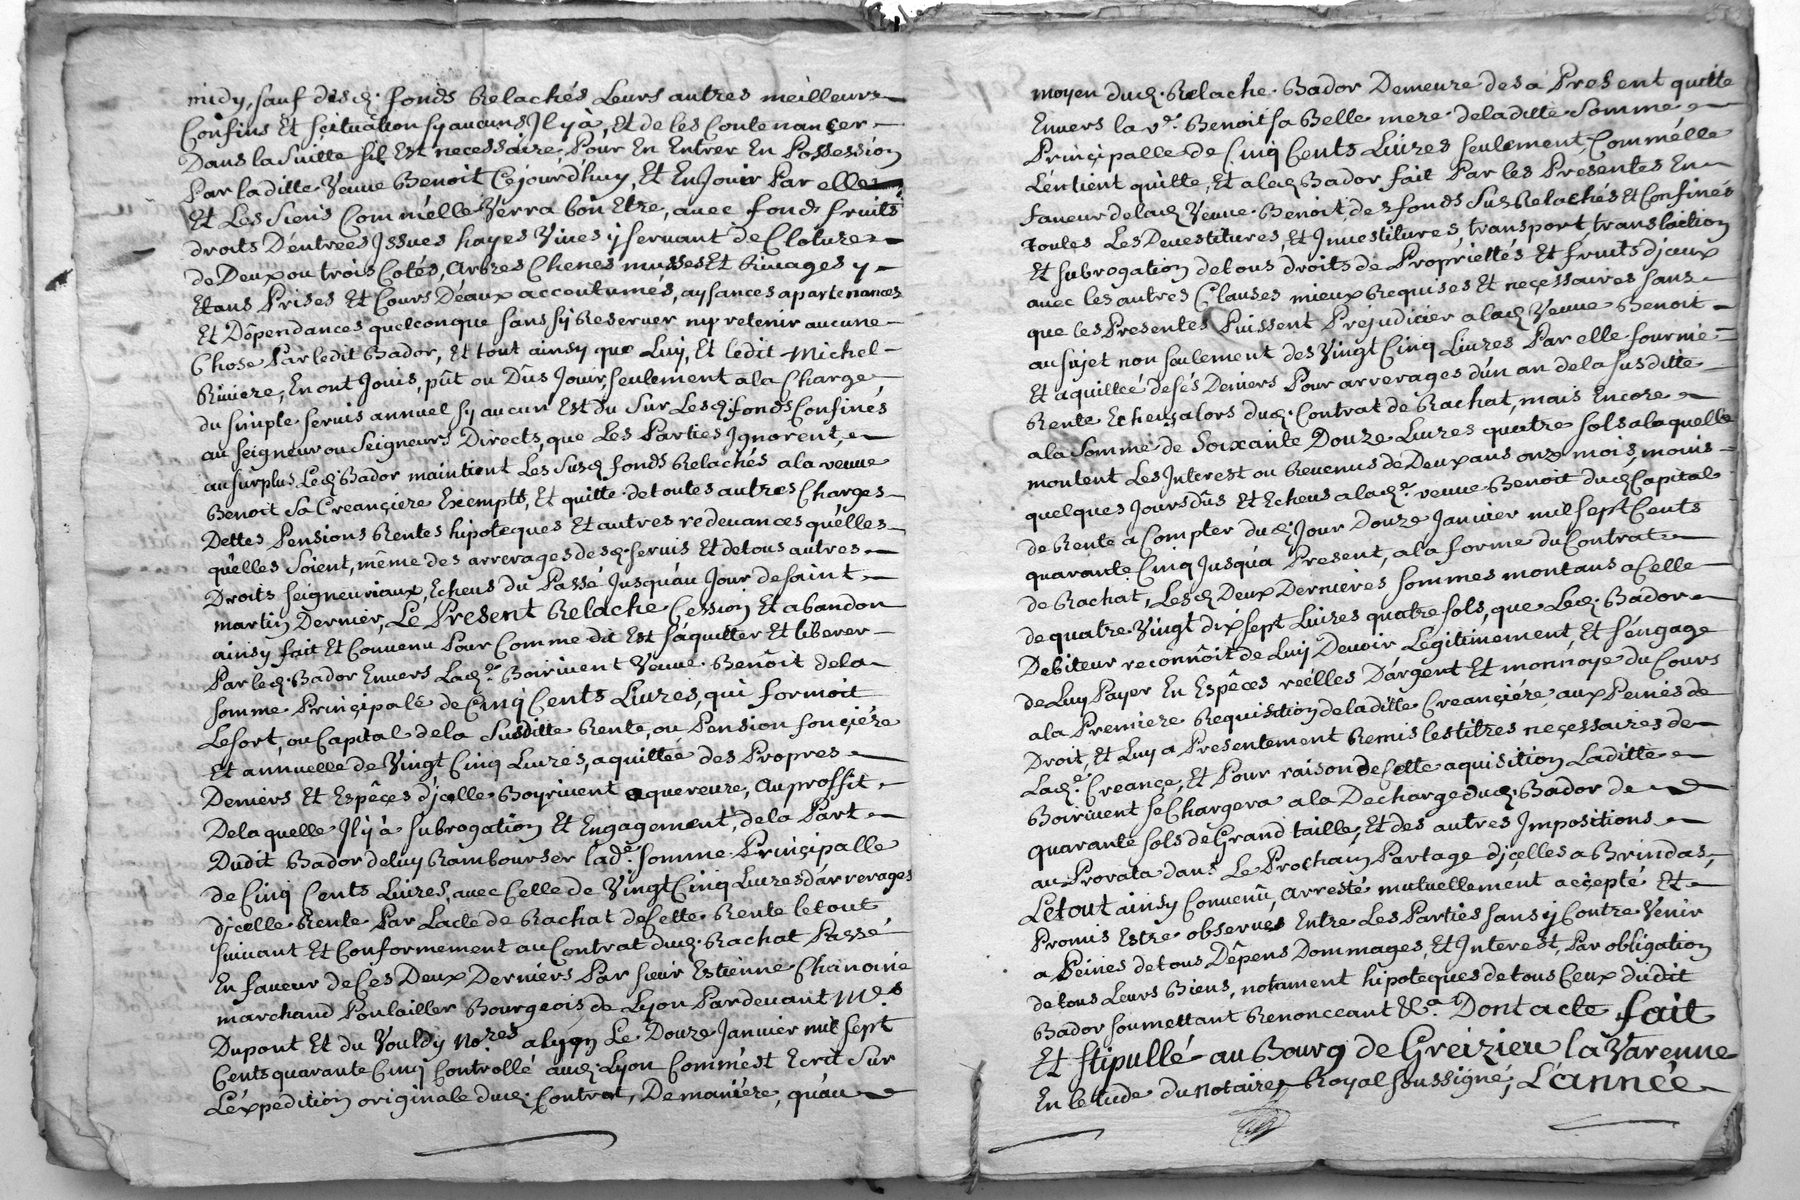 midy, sauf desd. fonds Relachés Leurs autres meilleurs
Confins Et scituation sy aucuns Il y a, Et de les Contenançer
Dans la Suitte s'il Est necessaire Pour En Entrer En Possession
Par laditte Veuve Benoit Cejourd'huy, Et En Jouir Par elle
Et Les Siens Comm'elle Verra bon Etre, avec fonds fruits
droits D'entrées Issues hayes Vives y servant de Cloture
de Deux ou trois Cotés, Arbres Chenes musses Et Rivages y
Etans Prises Et Cours D'eaux accoutumés, aysances apartenances
Et Dêpendances quelconque sans sy Reserver ny retenir aucune
Chose Par ledit Bador, Et tout ainsy que Luy, Et ledit Michel
Riviere, En ont Jouis, pût ou Dûs Jouir, seulement a la Charge
du simple servis annuel sy aucun Est du Sur Lesd. fonds Confinés
au seigneur ou Seigneurs Directs, que Les Parties Ignorent,
au surplus Led. Bador maintient Les Susd. fonds Relachés a la veuve
Benoit Sa Creançiére Exempts, Et quitte de toutes autres Charges
Dettes Pensions Rentes hipoteques Et autres redevances qu'elles
qu'elles Soient, même des arrerages desd. servis Et de tous autres
Droits seigneuriaux, Echeus du Passé Jusqu'au Jour de saint
martin Dernier, Le Present Relache Cession Et abandon
ainsy fait Et Convenu Pour Comme dit Est s'aquitter Et liberer
Par led. Bador Envers Lad.e Boirivent Veuve Benoit de la
somme Principale de Cinq Cents Livres, qui formoit
Le sort, ou Capital de la Susditte Rente, ou Pension fonçiére
Et annuelle de Vingt Cinq Livres, aquittée des Propres
Deniers Et Espêces d'jcelle Boyrivent aquereure, Au proffit
De laquelle Il y a subrogation Et Engagement, de la Part
Dudit Bador de luy Rambourser lad.e somme Prinçipalle
de Cinq Cents Livres, avec Celle de Vingt Cinq Livres d'arrerages
d'jcelle Rente Par L'acte de Rachat de Cette Rente le tout
suivant Et Conformement au Contrat dud. Rachat Passé
En faveur de Ces Deux Derniers Par sieur Estienne Chanoine
marchand Poulailler Bourgeois de Lyon Pardevant M.es
Dupont Et du Vouldy No.res a lyon Le Douze Janvier mil sept
Cents quarante Cinq Controllé aud. Lyon Comm'est Ecrit Sur
L'expedition originale dud. Contrat, De maniére, qu'au
moyen dud. Relache Bador Demeure des a Present quitte
Envers la v.e Benoit sa Belle mere de laditte Somme
Prinçipalle de Cinq Cents Livres seulement, Comm'elle
L'en tient quitte, Et a led. Bador fait Par les Presentes En
faveur de lad. Veuve Benoit des fonds Sus Relachés Et Confinés
Toutes Les Devestitures, Et Investitures, transport, translation
Et subrogation de tous droits de Propriettés Et fruits d'jceux
avec les autres Clauses mieux Requises Et neçessaires sans
que les Presentes Puissent Prejudicier a lad. Veuve Benoit
au sujet non seulement des Vingt Cinq Livres Par elle fournie
Et aquittée de sés Deniers Pour arrerages d'un an de la susditte
Rente Echeus alors dud. Contrat de Rachat, mais Encore
a la Somme de Soixante Douze Livres quatre sols a laquelle
montent Les Interest ou Revenus de Deux ans onze mois, moins
quelques Jours dûs Et Echeus a lad.e veuve Benoit dud. Capital
de Rente a Compter dud. Jour Douze Janvier mil sept Cents
quarante Cinq Jusqu'a Present, a la forme du Contrat
de Rachat, Lesd. Deux Dernieres sommes montans a Celle
de quatre Vingt dix sept Livres quatre sols, que Led. Bador
Debiteur reconnôit de Luy Devoir Legitimement, Et s'engage
de Luy Payer En Espêces réelles D'argent Et monnoye du Cours
a la Premiere Requisition de laditte Creançiére, aux Peines de
Droit, Et Luy a Presentement Remis les titres neçessaires de
Lad.e Creançe, Et Pour raison de Cette aquisition Laditte
Boirivent se Chargera a la Decharge dud. Bador de
quarante sols de Grand taille, Et des autres Impositions
au Prorata dans Le Prochain Partage d'jçelles a Brindas,
Le tout ainsy Convenû, Arresté mutuellement acçepté Et
Promis Estre observés Entre Les Parties sans y Contre Venir
a Peines de tous Dêpens Dommages, Et Interest, Par obligation
de tous Leurs Biens, notament hipoteques de tous Ceux dudit
Bador soumettant Renonceant &.a Dont acte fait
Et stipullé au Bourg de Greizieu la Varenne
En letude du notaire Royal soussigné, L'année